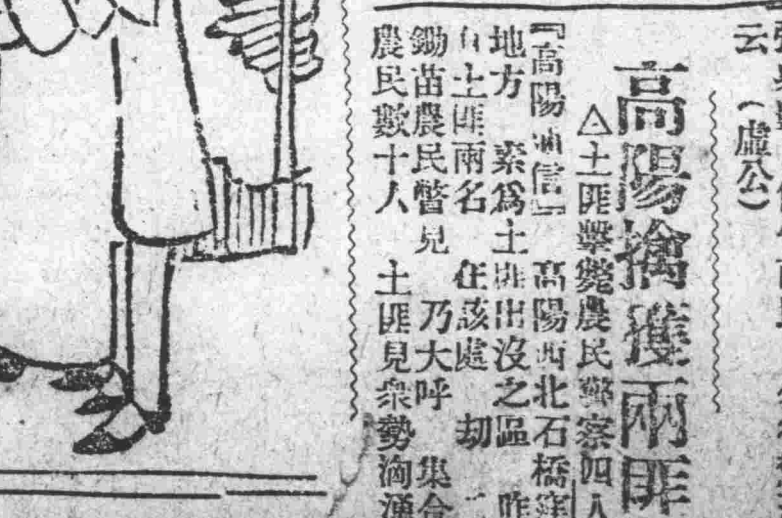 云 （虛公）
高陽擒獲兩匪
△土匪擊斃農民警察四人
『高陽通信』 高陽西北石橋
地方 素爲土匪出沒之區 昨
有土匪兩名 在該處 刧
鋤苗農民瞥見 乃大呼 集合
農民數十人 土匪見衆勢洶湧